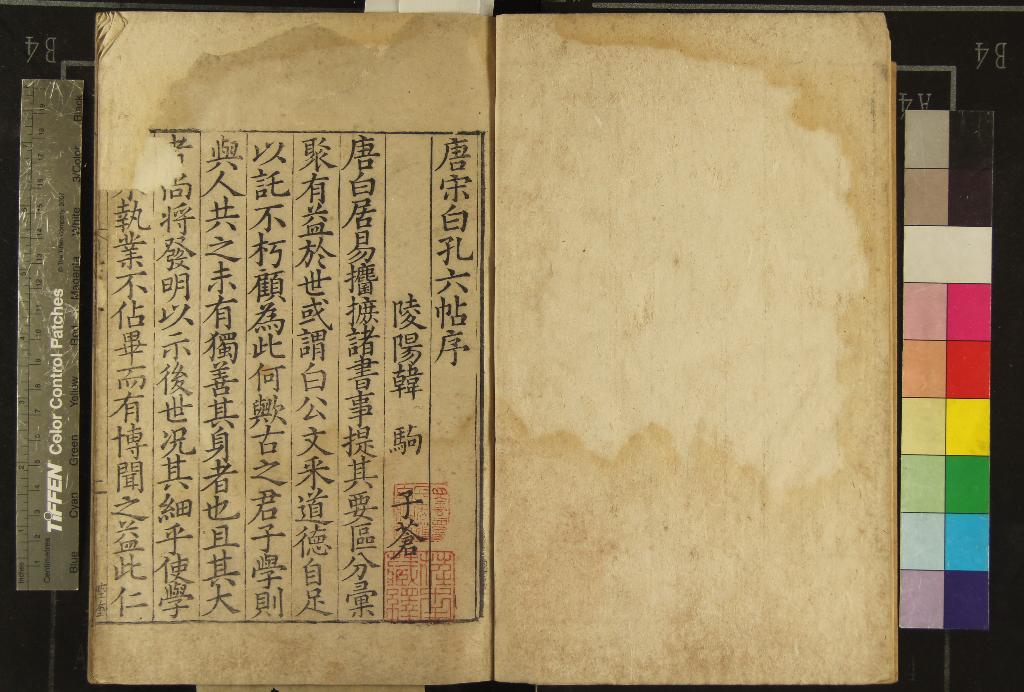 唐宋白孔六帖序
陵陽韓 駒 子蒼
唐白居易攟摭諸書事提其要區分彙
聚有益於世或謂白公文釆道德自足
以託不朽顧為此何歟古之君子學則
與人共之未有獨善其身者也且其大
者尚将發明以示後世况其細乎使學
執業不佔畢而有博聞之益此仁
TIFFEN Color Control Patches
© The Tiffen Company, 2007
Inches
Centimetres
Blue Cyan Green Yellow Red Magenta White 3/Color Black
B4
B4
A4